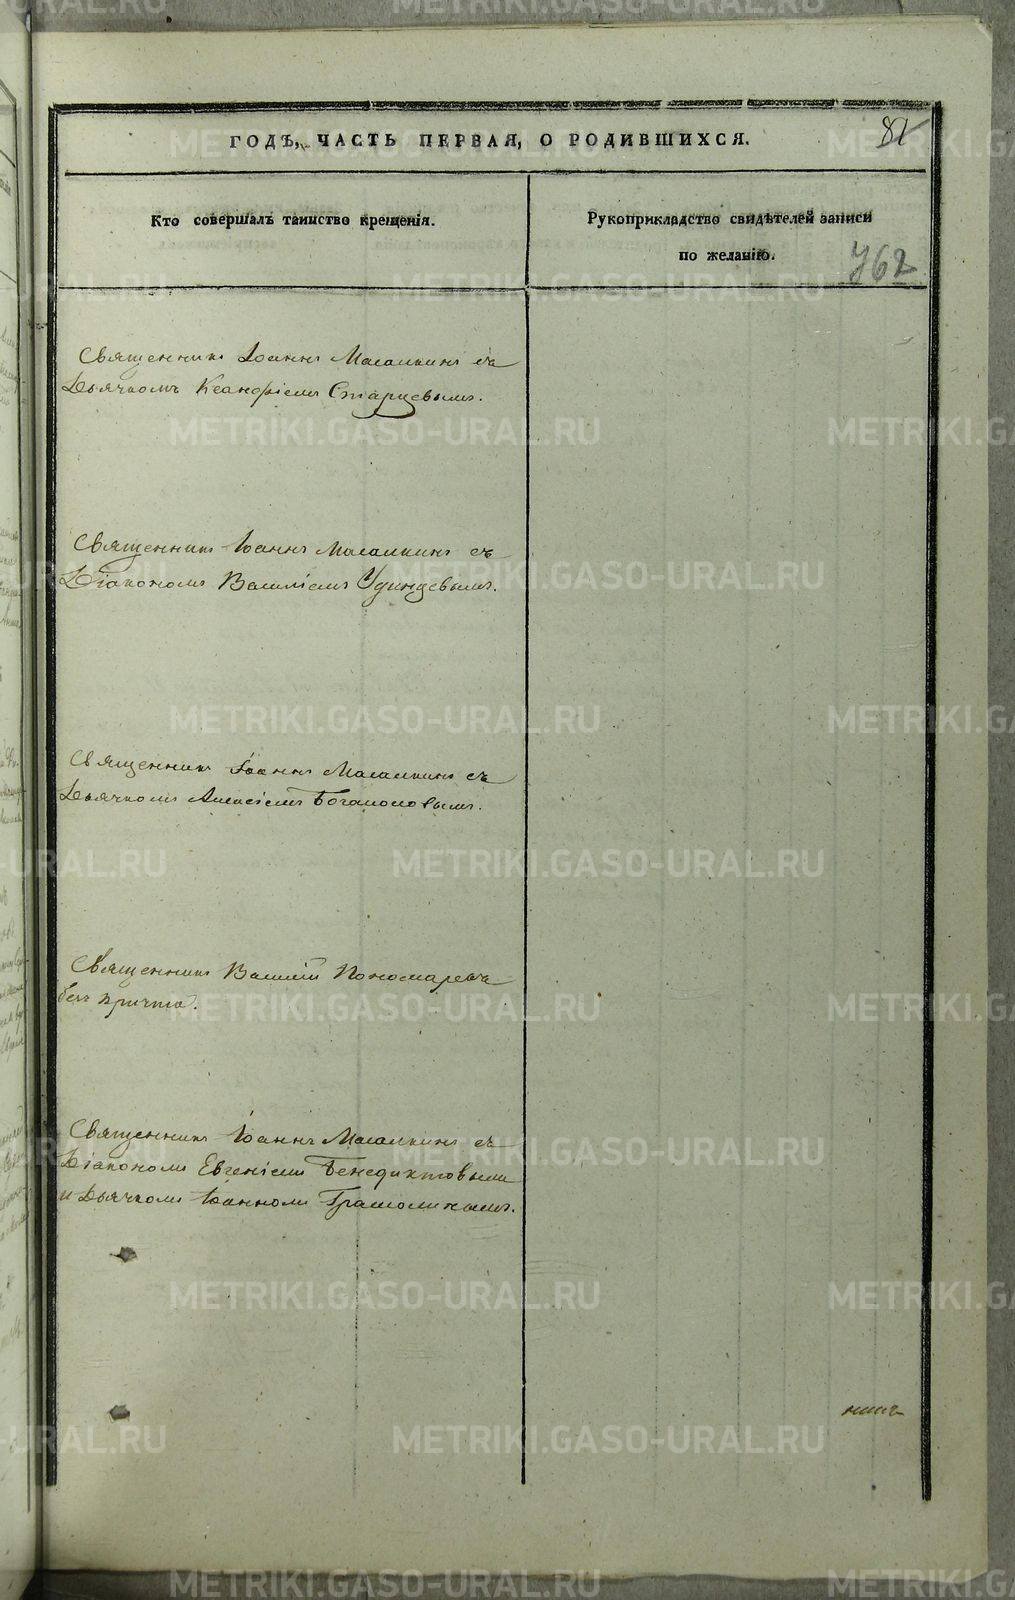 ГОДЪ, ЧАСТЬ ПЕРВАЯ, О РОДИВШИХСЯ.
81
Кто совершалъ таинство крещенія.
Рукоприкладство свидѣтелей записи
по желанію.
762
Священникъ Іоаннъ Масалкинъ съ
Дьячкомъ Ксанфіемъ Старцевымъ.
Священникъ Іоаннъ Масалкинъ съ
Діакономъ Василіемъ Удинцевымъ.
Священникъ Іоаннъ Масалкинъ съ
Дьячкомъ Алексіемъ Богомоловымъ.
Священникъ Василій Пономаревъ
безъ причта.
Священникъ Іоаннъ Масалкинъ съ
Діакономъ Евгеніемъ Бенедиктовымъ
и Дьячкомъ Іоанномъ Грамолинымъ.
METRIKI.GASO-URAL.RU